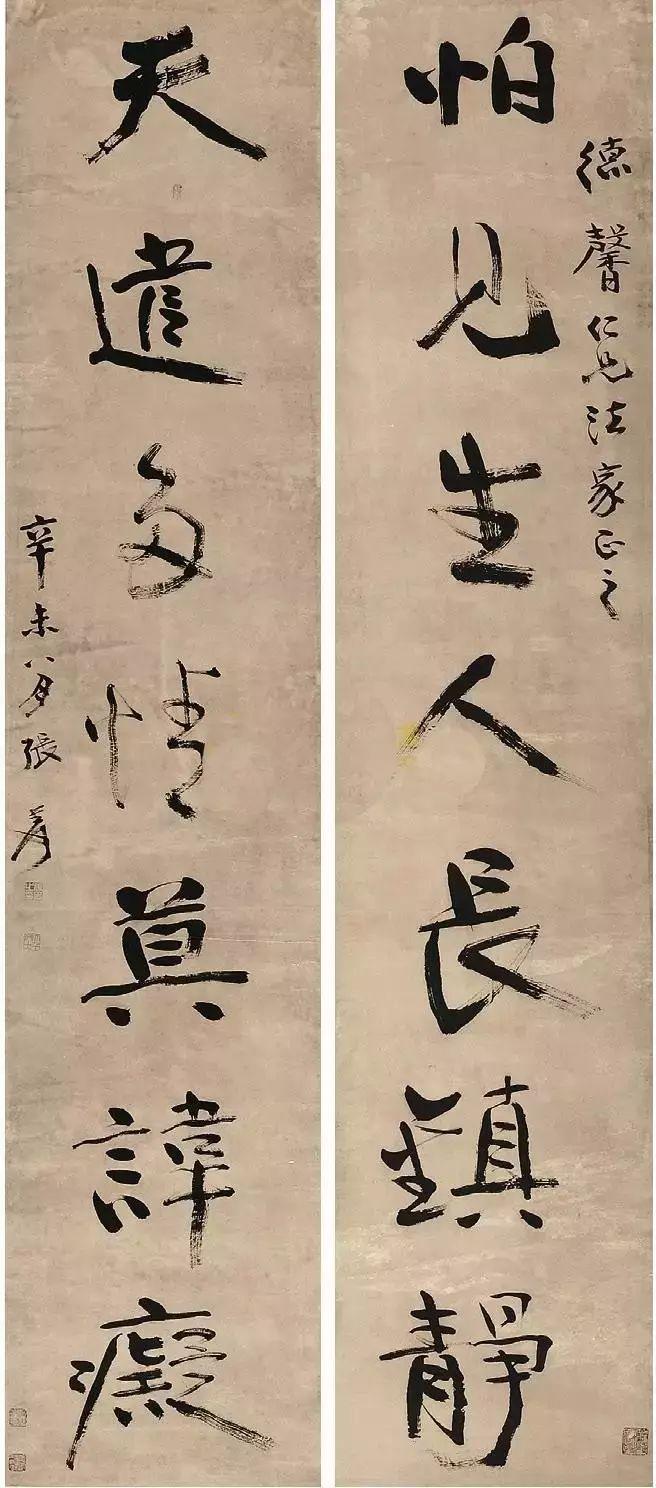 怕見生人長鎮靜
德馨仁兄法家正之
天遣多情莫諱癡
辛未八月張爰